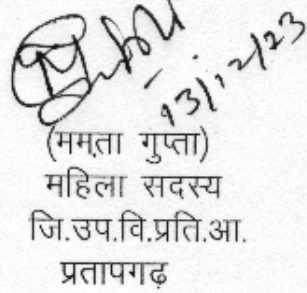 13/12/23
(ममता गुप्ता)
महिला सदस्य
जि.उप.वि.प्रति.आ.
प्रतापगढ़